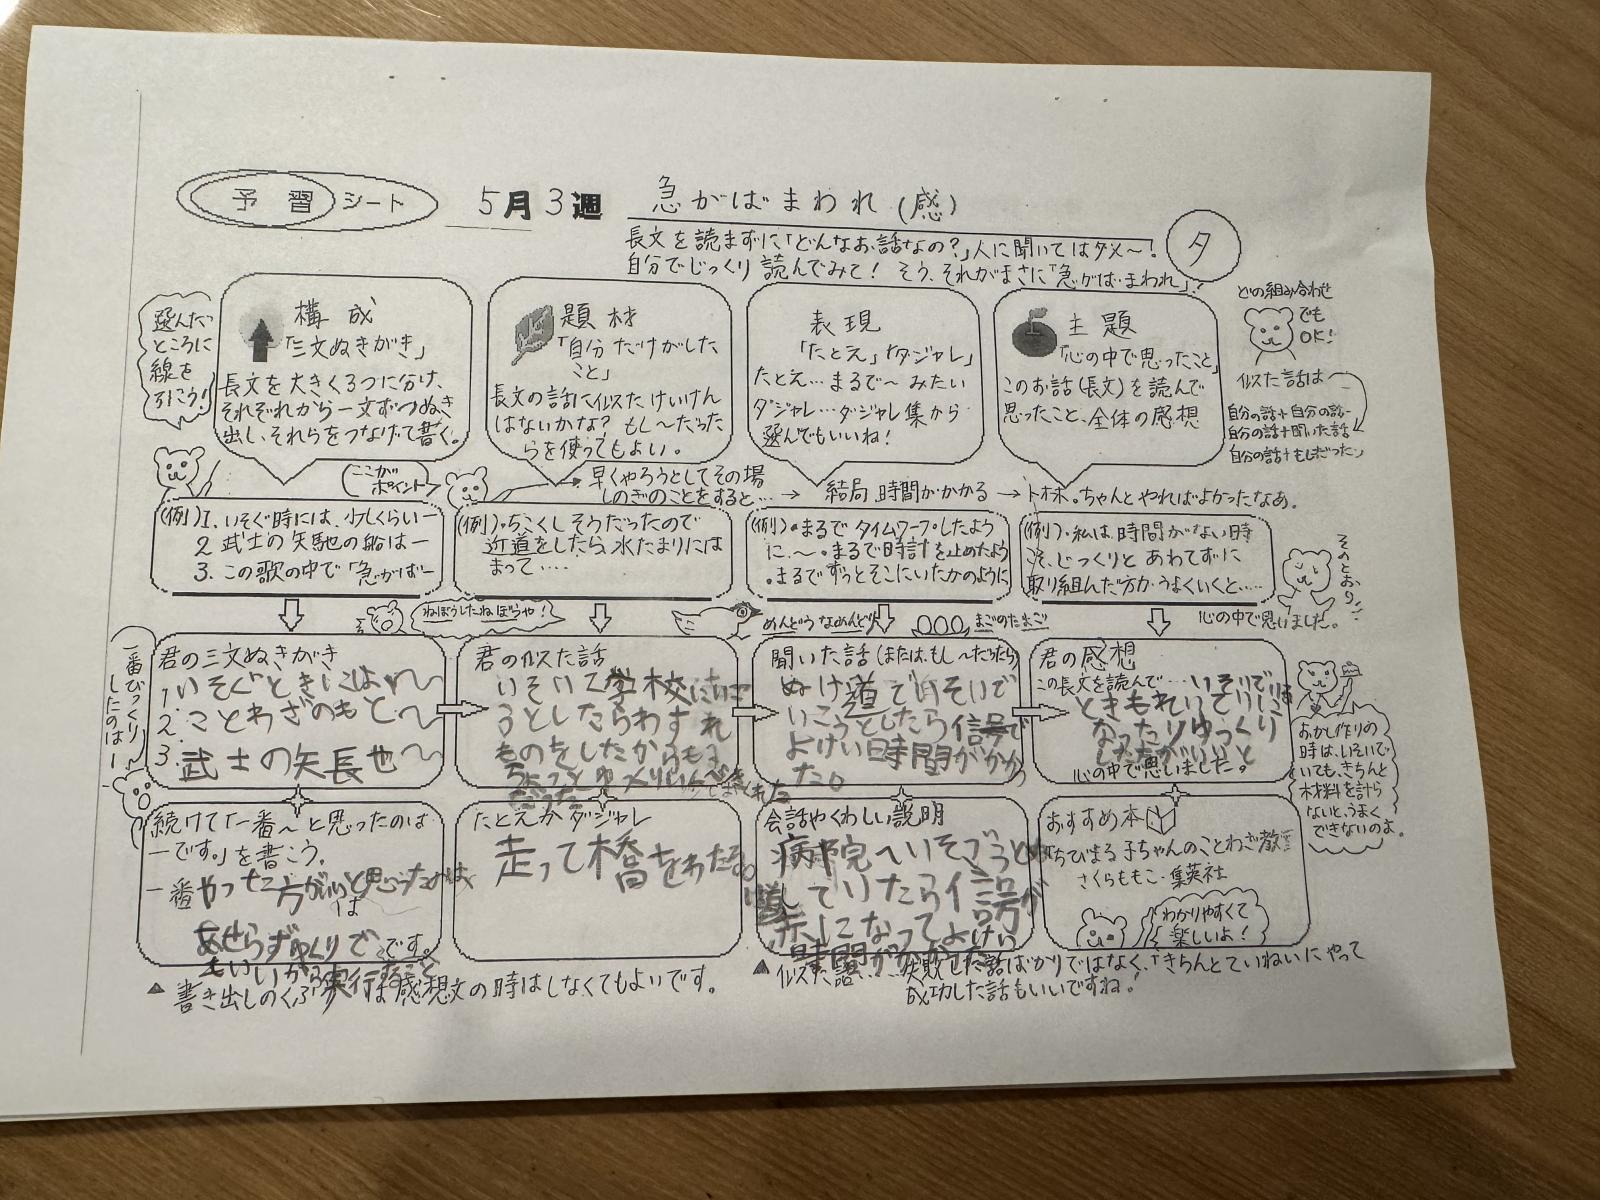 予習シート
5月3週
急がばまわれ(感)
タ
長文を読まずに「どんなお話なの?」人に聞いてはダメ〜!
自分でじっくり読んでみて! そう、それがまさに「急がば・まわれ」!
選んだ
ところに
線を
引こう!
構成
「三文ぬきがき」
長文を大きく3つに分け、
それぞれから一文ずつぬき
出し、それらをつなげて書く。
題材
「自分だけがした
こと」
長文の話に似たけいけん
はないかな? もし〜だった
らを使ってもよい。
表現
「たとえ」「ダジャレ」
たとえ…まるで〜みたい
ダジャレ…ダジャレ集から
選んでもいいね!
主題
「心の中で思ったこと」
このお話(長文)を読んで
思ったこと、全体の感想
どの組み合わせ
でも
OK!
似た話は
自分の話+自分の話
自分の話+聞いた話
自分の話+もしだったら
ここが
ポイント
早くやろうとしてその場
しのぎのことをすると…→ 結局、時間がかかる→トホホ。ちゃんとやればよかったなあ。
(例)1. いそぐ時には、少しくらいー
2. 武士の矢馳の船はー
3. この歌の中で「急がばー
(例)・ちこくしそうだったので
近道をしたら、水たまりには
まって‥‥
(例)・まるでタイムワープしたよう
に、〜。・まるで時計を止めたよう
・まるでずっとそこにいたかのように
(例)・私は、時間がない時
こそ、じっくりとあわてずに
取り組んだ方がうまくいくと‥‥
そのとおり!!
心の中で思いました。
ねぼうしたねぼうや!
めんどうなめんどり
まごのたまご
一番びっくり
したのはー
君の三文ぬきがき
1.いそぐときには〜
2.ことわざのもと〜
3.武士の矢長也〜
君の似た話
いそいで学校に
うとしたらわすれ
ものをしたからもう
ちょっとゆっくり
聞いた話(または、もし〜だったら)
ぬけ道でいそいで
いこうとしたら信号で
よけい時間がかかっ
た。
君の感想
この長文を読んで…いそいで
ときもれいせいに
なったりゆっくり
したほうがいいと
心の中で思いました。
おかし作りの
時は、いそいで
いても、きちんと
材料を計ら
ないと、うまく
できないのよ。
続けて「一番〜と思ったのは
ーです。」を書こう。
一番やった方がいいと思ったのは
は
あせらずゆっくりで です。
もいいから実行すること
たとえかダジャレ
走って橋をわたる。
会話やくわしい説明
病院へいそごうと
していたら信号が
赤になってよけい
時間がかかった
おすすめ本
「ちびまる子ちゃんのことわざ教室」
さくらももこ・集英社
わかりやすくて
楽しいよ!
▲ 書き出しのくふうは感想文の時はしなくてもよいです。
▲ 似た話…失敗した話ばかりではなく、「きちんとていねいにやって
成功した話もいいですね!